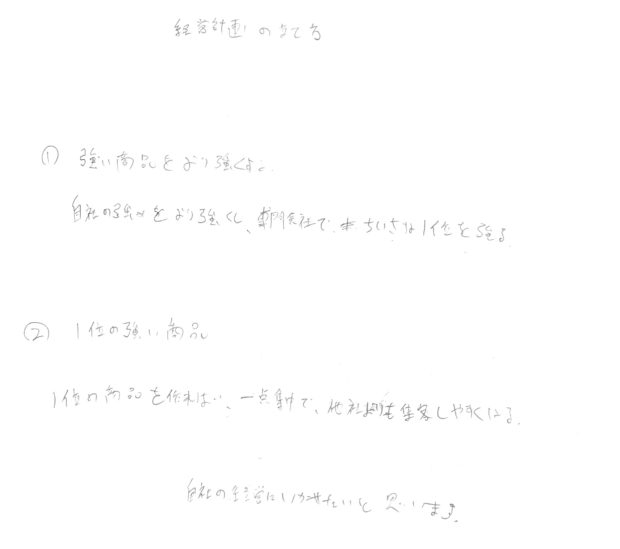 経営計画の立て方
① 強い商品をより強くする。
自社の強みをより強くし、専門会社で ちいさな1位を
② 1位の強い商品
1位の商品を作れば、一点集中で、他社よりも集客しやすくなる。
自社の経営にいかせたいと思います。